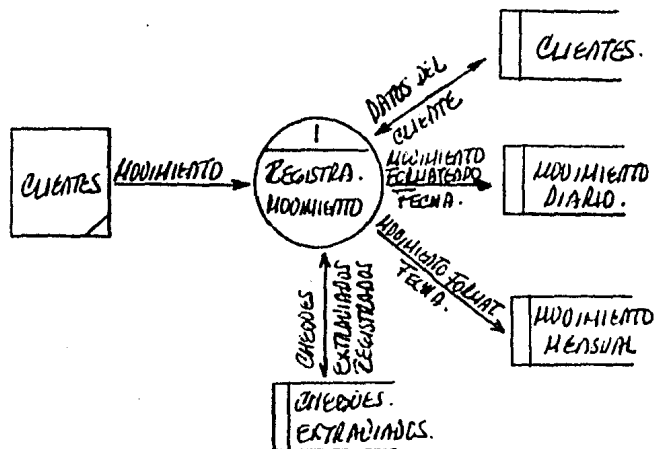 CLIENTES.
DATOS DEL
CLIENTE
1
REGISTRA.
MOVIMIENTO
CLIENTES
MOVIMIENTO
MOVIMIENTO
FORMATEADO
FECHA.
MOVIMIENTO
DIARIO.
MOVIMIENTO FORMAT
FECHA.
MOVIMIENTO
MENSUAL
CHEQUES
EXTRAVIADOS
REGISTRADOS
CHEQUES.
EXTRAVIADOS.